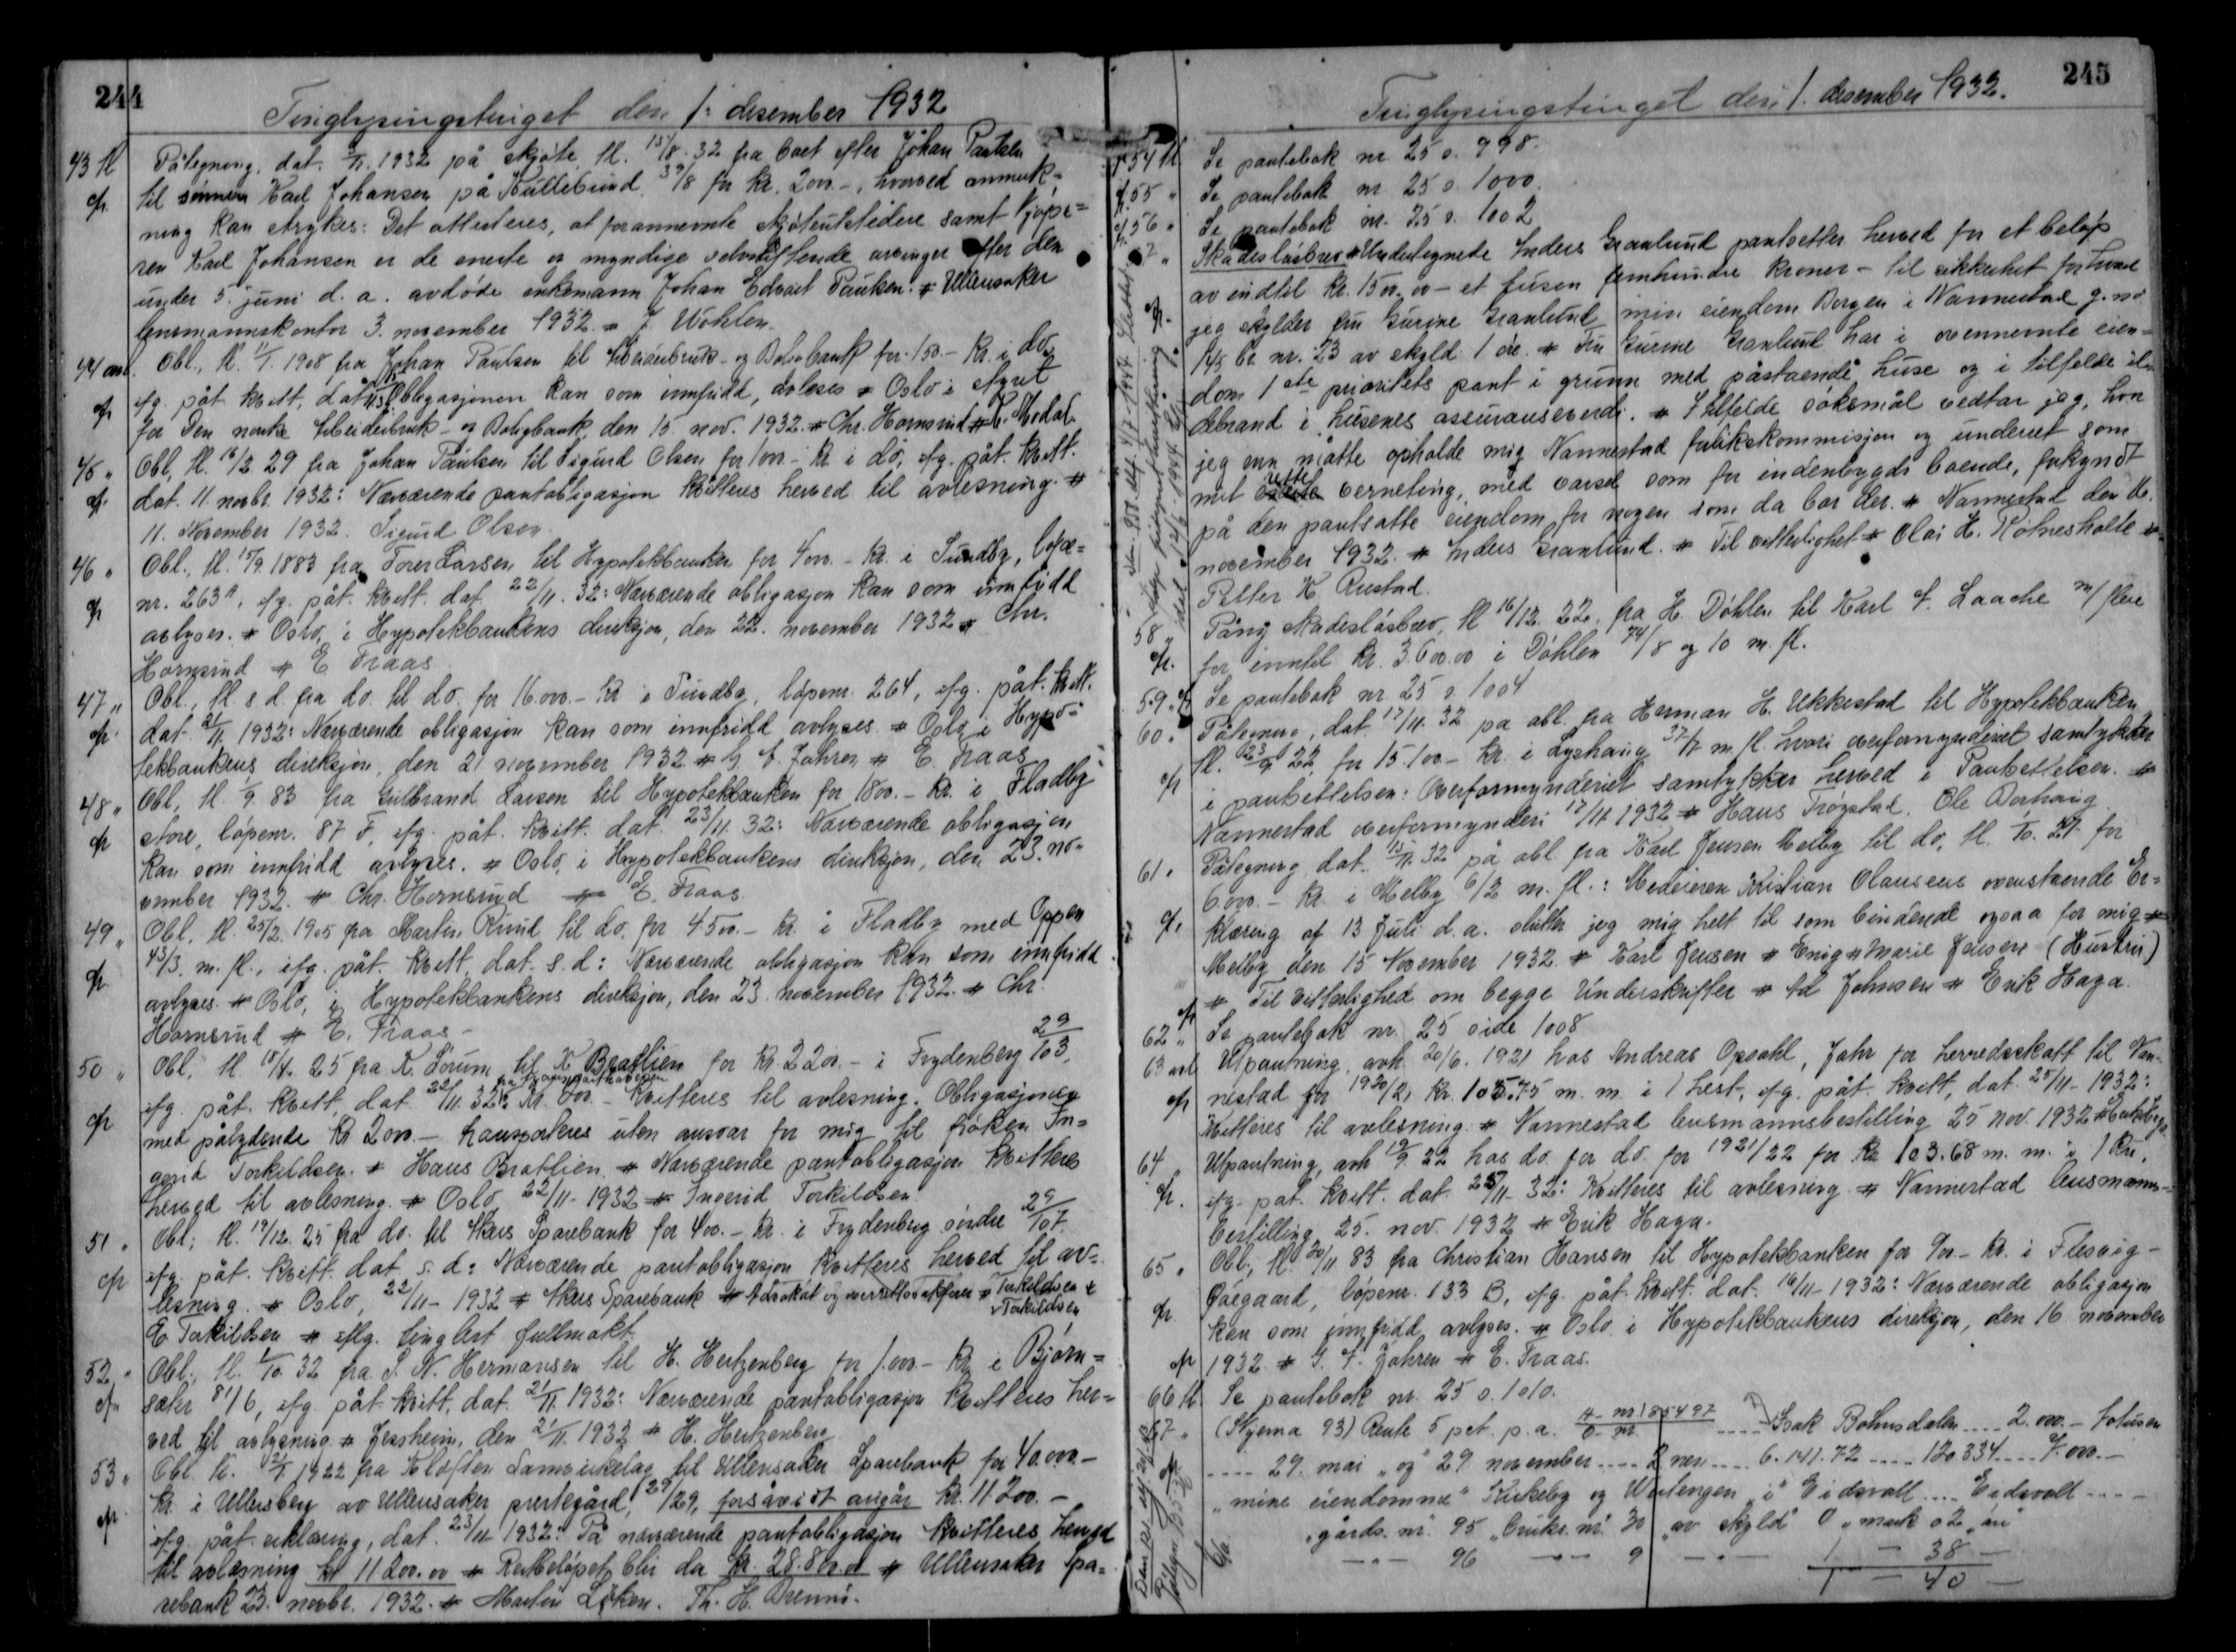 244
Tinglysingstinget den 1. desember 1932
43 tl Påtegning, dat. 3/11. 1932 på skjøte, tl. 15/8. 32 fra boet efter Johan Paulsen
til sønnen Karl Johansen på Kullebund 39/8 for kr. 2000.-, hvorved anmerk=
ning kan strykes: Det attesteres, at forannevnte skjøteutstedere samt kjøpe=
ren Karl Johansen er de eneste og myndige selvskiftende arvinger efter den
under 5. juni d. a. avdøde enkemann Johan Edvart Paulsen. # Ullensaker
lensmannskontor 3. november 1932. # J. Wøhlen.
44 avl. Obl., tl. 1908 fra Johan Paulsen til Arbeiderbruk- og Boligbank for 150.- kr. i do,
efg. påt. kvitt. dat. 15/11 32: Obligasjonen kan som innfridd, avleses # Oslo i styret
for Den norske Arbeiderbruk- og Boligbank, den 15. nov. 1932. # Chr. Hornsrud #
45 " Obl., tl. 16/2 29 fra Johan Paulsen til Sigurd Olsen for 1000.- kr. i do, efg. påt. kvitt.
dat. 11. novbr. 1932: Nærværende pantobligasjon kvitteres herved til avlesning. #
11. November 1932. Sigurd Olsen.
46 " Obl., tl. 15/9. 1883 fra Torer Larsen til Hypotekbanken for 4000.- kr. i Sundby, løpe=
nr. 263 A, efg. påt. kvitt. dat. 22/11. 32: Nærværende obligasjon kan som innfridd
avlyses. # Oslo, i Hypotekbankens direksjon, den 22. november 1932 # Chr.
Hornsrud # E. Fraas.
47 " Obl., tl. s. d. fra do. til do. for 1600.- kr. i Sundby, løpenr. 264, efg. påt. kvitt.
dat. 21/11 1932: Nærværende obligasjon kan som innfridd avlyses # Oslo i Hypo=
tekbankens direksjon, den 21 november 1932 # G. F. Jahren # E. Fraas
48 " Obl., tl. 1/9. 83 fra Gulbrand Larsen til Hypotekbanken for 1800.- kr. i Fladby
store, løpenr. 87 F, efg. påt. kvitt. dat. 23/11. 32: Nærværende obligasjon
kan som innfridd avlyses. # Oslo, i Hypotekbankens direksjon, den 23. no=
vember 1932. # Chr. Hornsrud # E. Fraas.
49 " Obl., tl. 25/2. 1905 fra Martin Ruud til do. for 4500.- kr. i Fladby med Oppen
43/3. m. fl., efg. påt. kvitt. dat. s. d: Nærværende obligasjon kan som innfridd
avlyses. # Oslo, i Hypotekbankens direksjon, den 23. november 1932. # Chr.
Hornsrud # E. Fraas -
50 " Obl., tl. 18/4. 25 fra K. Sørum til H. Bratlien for kr. 2200.- i Frydenberg 29/103,
efg. påt. kvitt. dat. 22/11. 32: kr. 200.- kvitteres til avlesning. Obligasjonen
med pålydende kr. 2000.- transporteres uten ansvar for mig til frøken In=
gerid Torkildsen. # Hans Bratlien # Nærværende pantobligasjon kvitteres
herved til avlesning. # Oslo, 22/11- 1932 # Ingerid Torkildsen.
51 " Obl., tl. 17/12. 25 fra do. til Akers Sparebank for 400.- kr. i Frydenberg søndre 29/107.
efg. påt. kvitt. dat. s. d: Nærværende pantobligasjon kvitteres herved til av=
lesning. # Oslo, 22/11- 1932 # Akers Sparebank # Advokat og overrettssakfører # Torkildsen &
Torkildsen
E. Torkildsen # eflg. tinglest fullmakt.
52 " Obl., tl. 1/10. 32 fra S. N. Hermansen til H. Hertzenberg for 1.000.- kr. i Bjørn=
sæter 81/6, efg. påt. kvitt. dat. 21/11. 1932: Nærværende pantobligasjon kvitteres her=
ved til avlysning. # Jessheim, den 21/11. 1932 # H. Hertzenberg
53 " Obl. tl. 1922 fra Kløften Samvirkelag til Ullensaker Sparebank for 40.000.-
kr. i Ullersberg av Ullensaker prestegård, 129/29, forsåvidt angår kr. 11.200.-
efg. påt. erklæring, dat. 23/11 1932: På nærværende pantobligasjon kvitteres herved
til avlesning kr. 11200.00 # Restbeløpet blir da kr. 28.800.00 # Ullensaker Spa=
rebank 23. novbr. 1932. # Martin Løken. Th. H. Drenni.
245
Tinglysingstinget den 1. desember 1932.
54 tl Se pantebok nr. 25 s. 998.
55 " Se pantebok nr. 25 s. 1000.
56 " Se pantebok nr. 25 s. 1002
57 " Skadesløsbrev # Undertegnede Anders Granlund pantsetter herved for et beløp
av inntil kr. 1500.00 - et tusen femhundre kroner - til sikkerhet for hvad
jeg skylder fru Gurine Granlund min eiendom Borgen i Nannestad g. nr.
145 br. nr. 23 av skyld 1 øre. # Fru Gurine Granlund har i ovennevnte eien=
dom 1ste prioritets pant i grunn med påstående huse og i tilfelde il=
debrand i husenes assuranseverdi. # I tilfelde søksmål vedtar jeg, hvor
jeg enn måtte opholde mig Nannestad forlikskommisjon og underrett som
mitt rette verneting, med varsel som for indenbygds boende, forkyndt
på den pantsatte eiendom for nogen som da bor der. # Nannestad den 16.
november 1932. # Anders Granlund. # Til vitterlighet # Olai H. Rotnesholte #
Petter K. Rustad.
58 " Påny skadesløsbrev, tl. 16/12. 22, fra H. Døhlen til Karl F. Laache m/ flere
for inntil kr. 3.600.00 i Døhlen 74/8 og 10 m. fl.
59 " Se pantebok nr. 25 s. 1004
60 " Påtegning, dat. 17/11. 32 på obl. fra Herman H. Ukkestad til Hypotekbanken
tl. 23/9 22, for 15.100.- kr. i Lyshaug 37/7 m. fl. hvori overformynderiet samtykker
i pantsettelsen: Overformynderiet samtykker herved i Pantsettelsen. #
Nannestad overformynderi 17/11 1932 # Hans Trøgstad. Ole Dorhaug
61 " Påtegning dat. 15/11. 32 på obl. fra Karl Jensen Melby til do, tl. 1/10. 27 for
6000.- kr. i Melby 6/2 m. fl.: Medeieren Kristian Olausens ovenstående Er=
klæring af 13 Juli d. a. slutter jeg mig helt til som bindende ogsaa for mig #
Melby den 15 November 1932. # Karl Jensen # Enig # Marie Jensen (Hustru)
# Til Vitterlighed om begge Underskrifter # Ad Johnsen # Erik Haga.
62 " Se pantebok nr. 25 side 1008
63 avl Utpantning, avh. 20/6. 1921 hos Andreas Opsahl, Jahr for herredsskatt til Nan=
nestad for 1920/21 kr. 105.75 m. m. i 1 hest, efg. påt. kvitt, dat. 25/11- 1932:
Kvitteres til avlesning. # Nannestad lensmannsbestilling 25 nov. 1932 # Erik Haga.
64 Utpantning, avh 19/9 22 hos do. for do. for 1921/22 for kr. 103.68 m. m. i 1 ku,
efg. påt. kvitt. dat. 25/11- 32: Kvitteres til avlesning. # Nannestad lensmanns=
bestilling 25. nov. 1932 # Erik Haga.
65 " Obl., tl. 20/11 83 fra Christian Hansen til Hypotekbanken for 900.- kr. i Flesvig-
Ødegaard, løpenr. 133 B, efg. påt. kvitt. dat. 16/11- 1932: Nærværende obligasjon
kan som innfridd avlyses. # Oslo, i Hypotekbankens direksjon, den 16. november
1932. # G. F. Jahren # E. Fraas.
66 tl Se pantebok nr. 25 s. 1010.
67 " (Skjema 93) Rente 5 pct. p. a. A- nr 185497 .... Isak Bohnsdalen .... 2.000.- totusen
.... 29. mai "og" 29 november .... 2 nen .... 6.141.72 .... 120334 .... 7.000.-
"mine eiendomme" Kirkeby og Westengen "i" Eidsvoll .... Eidsvoll ....
"gårds. nr." 95 "bruks. nr." 30 "av skyld" 0 "mark 02 "øre"
— " — 96 — " — 9 — " — 1 — 38 —
1 — 40 —